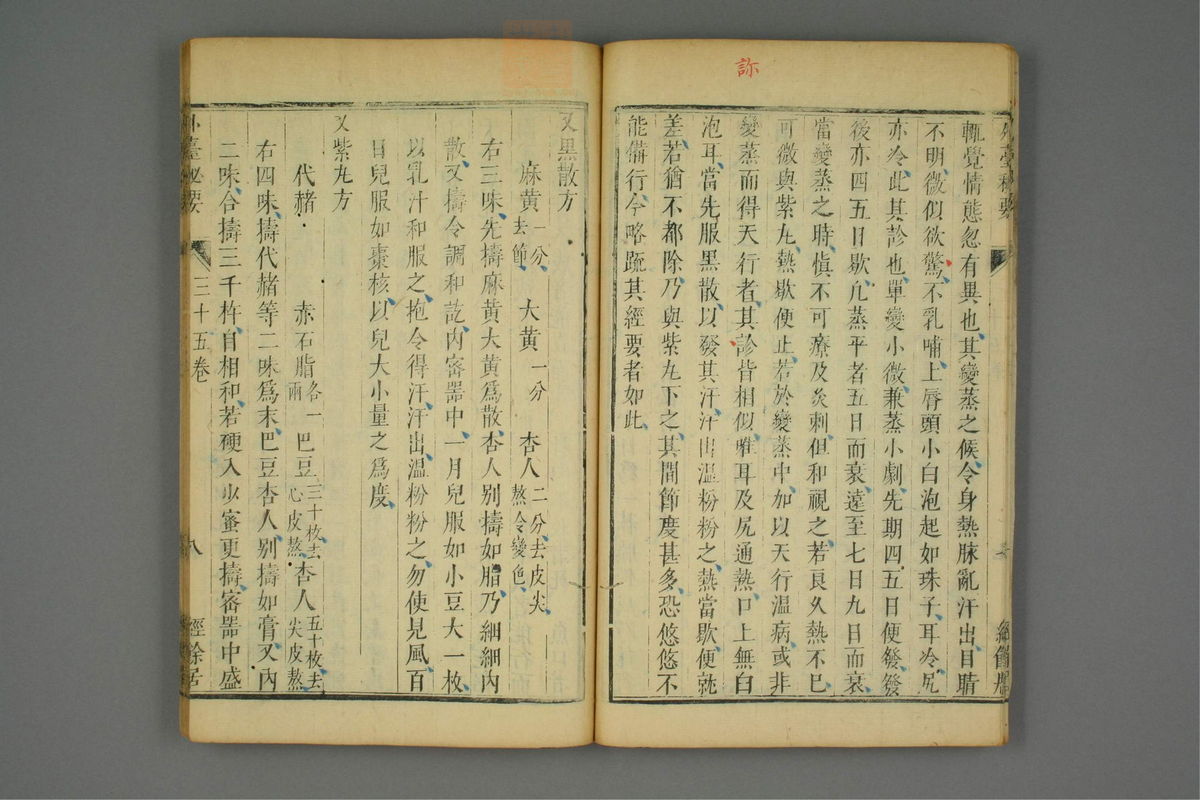 弥
外臺秘要
輒覺情態忽有異也其變蒸之候令身熱脉亂汗出目睛
不明微似欲驚不乳哺上脣頭小白泡起如珠子耳冷尻
亦冷此其診也單變小微兼蒸小劇先期四五日便發發
後亦四五日歇凡蒸平者五日而衰遠至七日九日而衰
當變蒸之時慎不可療及灸刺但和視之若良久熱不已
可微與紫丸熱歇便止若於變蒸中加以天行溫病或非
變蒸而得天行者其診皆相似唯耳及尻通熱口上無白
泡耳當先服黑散以發其汗汗出溫粉粉之熱當歇便就
差若猶不都除乃與紫丸下之其間節度甚多恐悠悠不
能備行今略䟽其經要者如此
又黑散方
麻黄一分去節 大黄一分 杏人二分去皮尖熬令變色
右三味先擣麻黄大黄爲散杏人别擣如脂乃細細内
散又擣令調和訖内密器中一月兒服如小豆大一枚
以乳汁和服之抱令得汗汗出溫粉粉之勿使見風百
日兒服如棗核以兒大小量之爲度
又紫丸方
代赭 赤石脂各一兩 巴豆三十枚去心皮熬 杏人五十枚去尖皮熬
右四味擣代赭等二味爲末巴豆杏人别擣如膏又内
二味合擣三千杵自相和若硬入少蜜更擣密器中盛
外臺秘要 三十五卷 八 經餘居